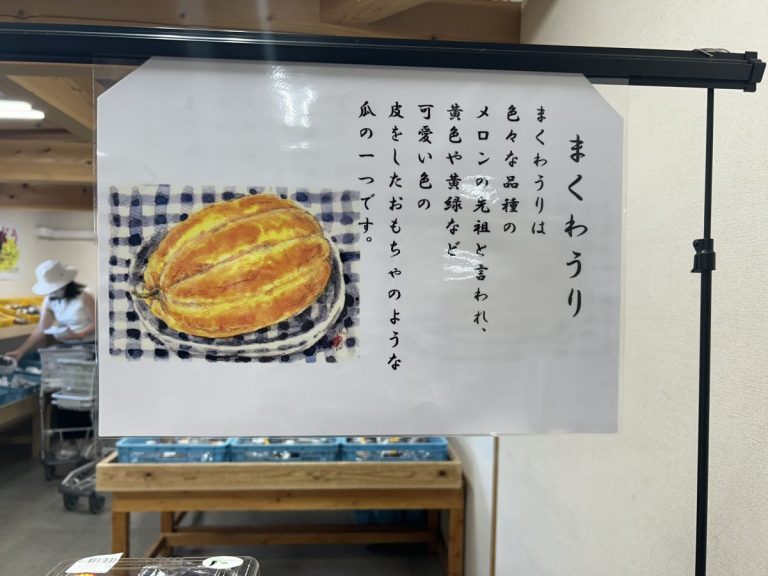 まくわうり
まくわうりは
色々な品種の
メロンの先祖と言われ、
黄色や黄緑など
可愛い色の
皮をしたおもちゃのような
瓜の一つです。